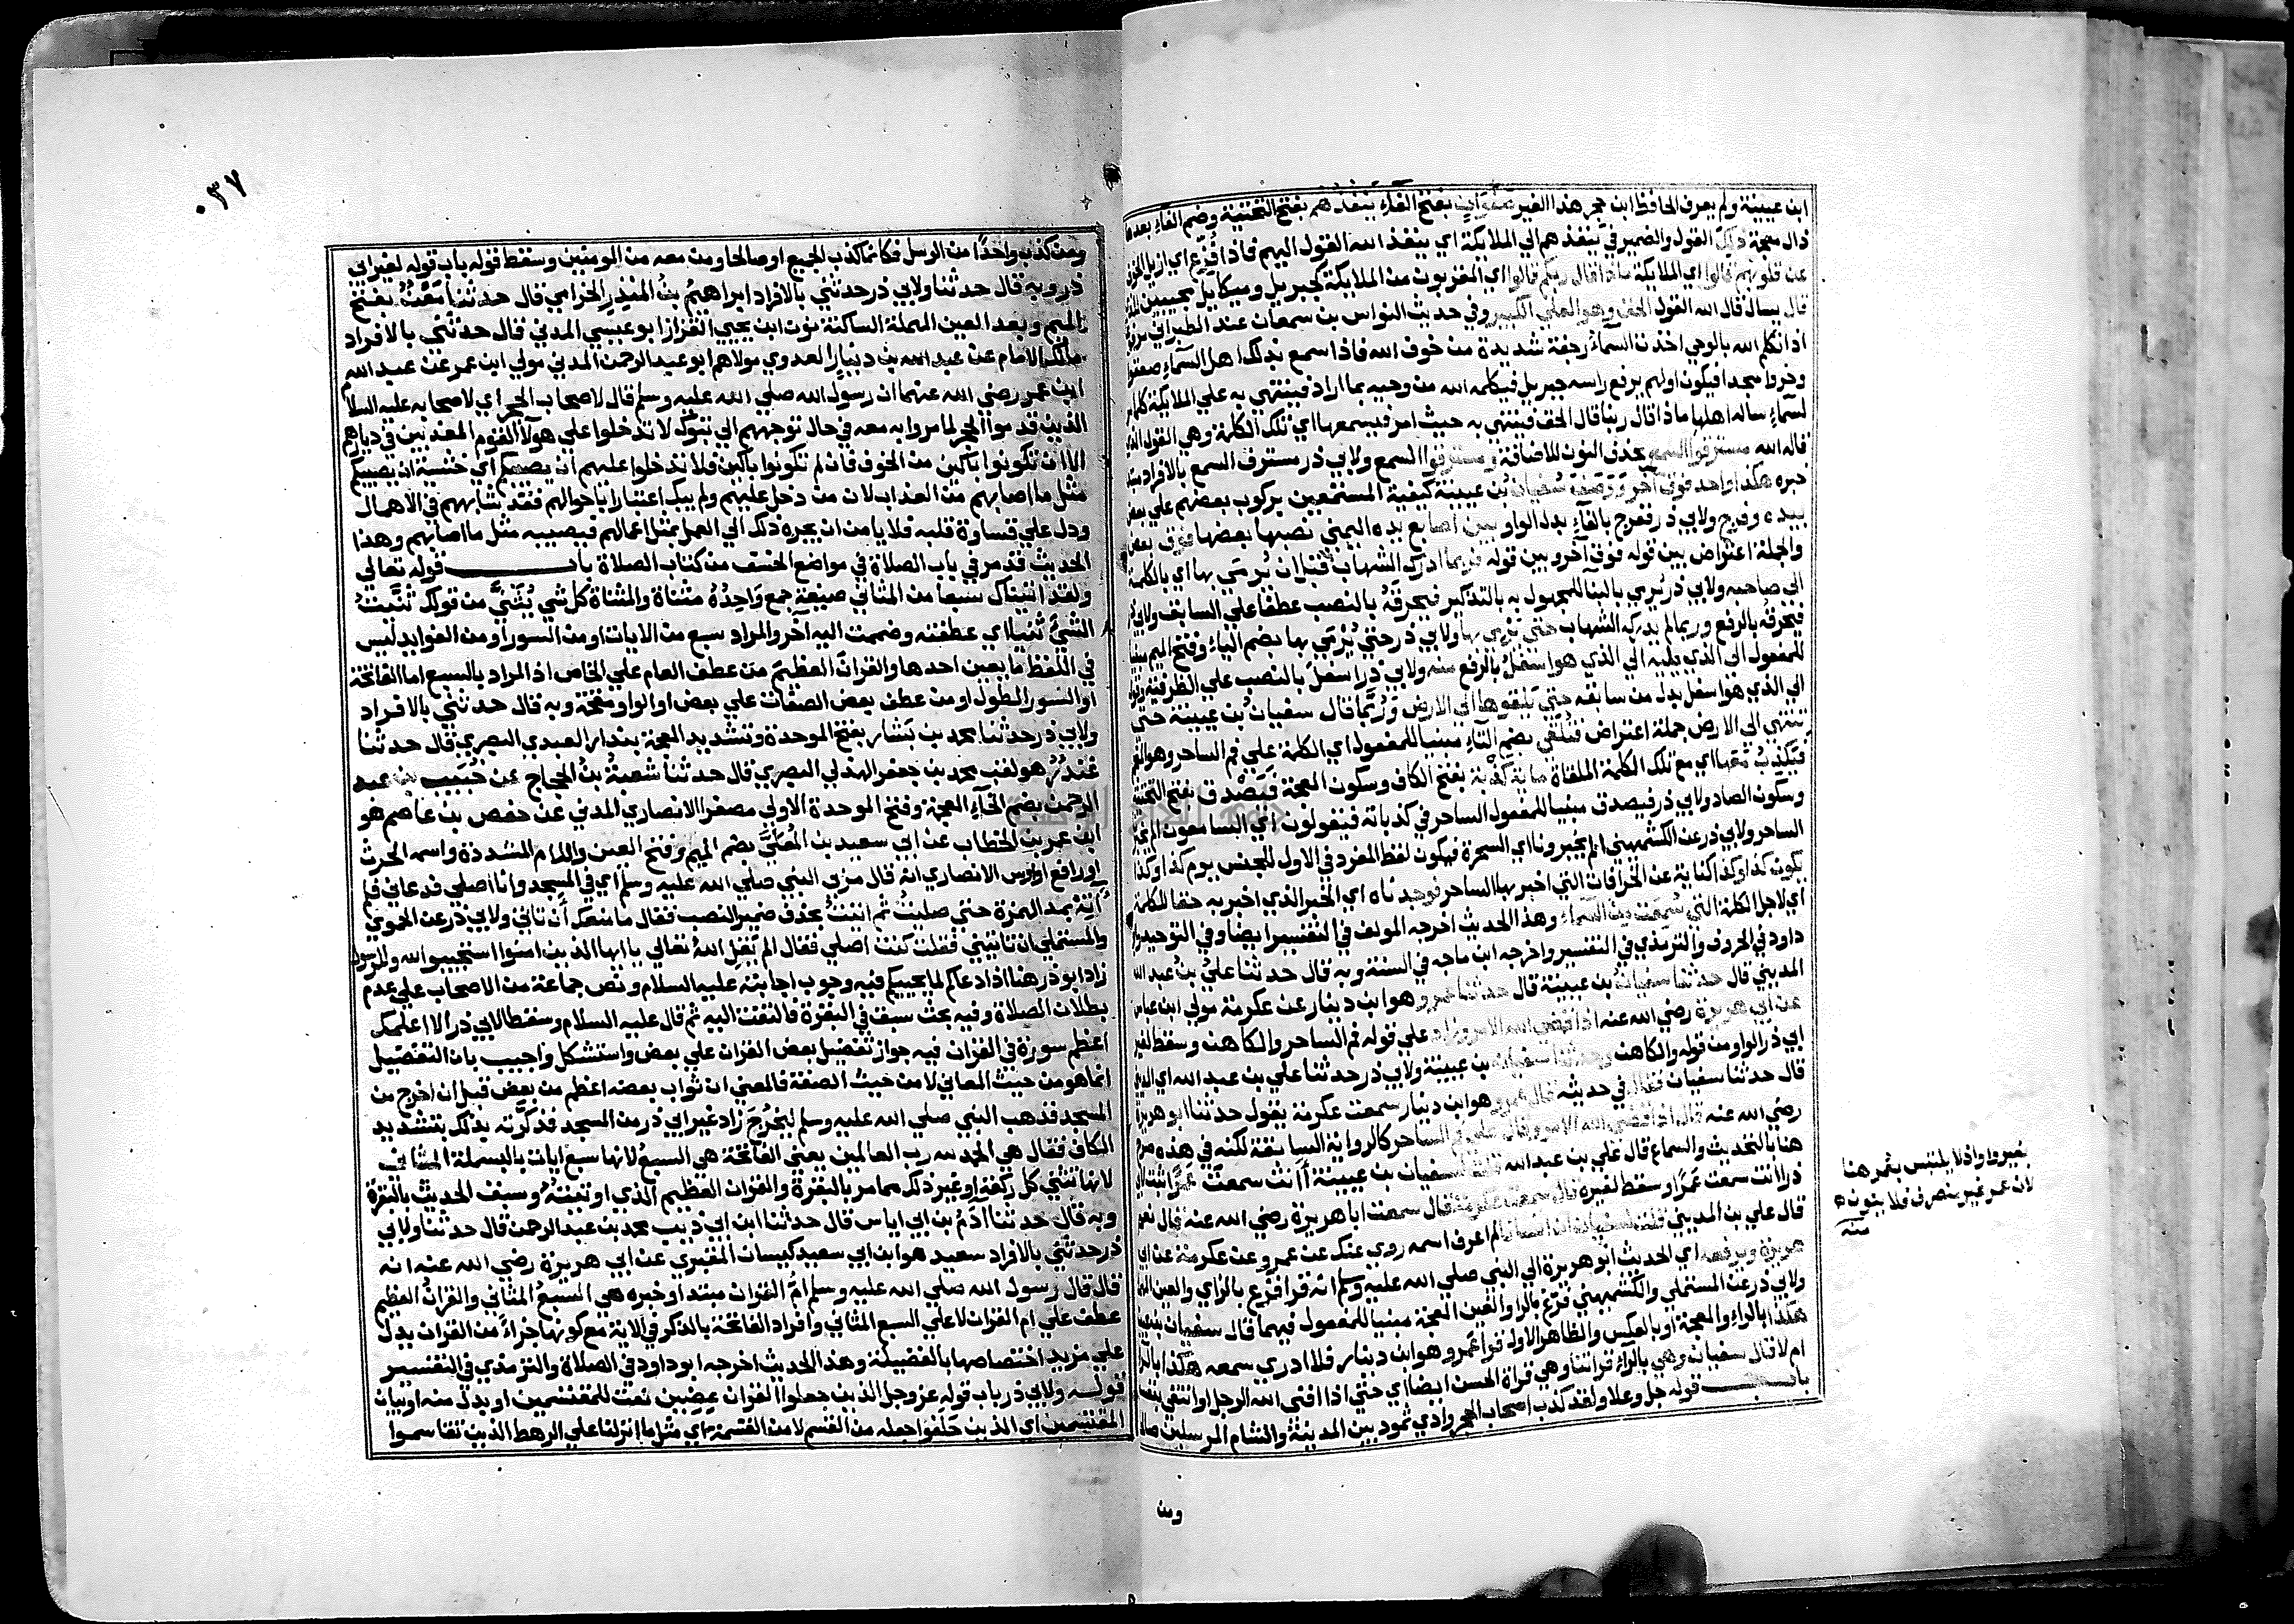 ابن عيينة ولم يعرف الحافظ ابن حجر هذا الغير بفتح الفاء ينفذهم بفتح التحتية وضم الفاء بعدها
ذال معجمة ذلك القول والضمير في ينفذهم الي الملايكة اي ينفذ الله القول اليهم فاذا فزع اي ازيل الخوف
عن قلوبهم قالوا اي الملايكة ماذا قال ربكم قالوا اي المقربون من الملايكة كجبريل وميكايل مجيبين للذي
قال يسال قال الله القول الحق وهو العلي الكبير وفي حديث النواس بن سمعان عند الطبراني مرفوعا
اذا تكلم الله بالوحي اخذت السماء رجفة شديدة من خوف الله فاذا سمع بذلك اهل السماء صعقوا
وخروا سجدا فيكون اولهم يرفع راسه جبريل فيكلمه الله من وحيه بما اراد فينتهي به علي الملايكة كلما مر
لسماء ساله اهلها ماذا قال ربنا قال الحق فينتهي به حيث امر فيسمعها اي تلك الكلمة وهي القول الذي
قاله الله مسترقوا السمع بحذف النون للاضافة و مسترقوا السمع ولابي ذر مسترق السمع بالافراد
خبره هكذا واحد فوق اخر ووصف سفيان بن عيينة كيفية المستمعين بركوب بعضهم علي بعض
بيده وفرج ولابي ذر ففرج بالفاء بدل الواو بين اصابع يده اليمني نصبها بعضها فوق بعض
والجملة اعتراض بين قوله فوق اخر وبين قوله فربما ادرك الشهاب قبل ان يرمي بها اي بالكلمة
الي صاحبه ولابي ذر يرمي بالبنا للمجهول به بالتذكير فيحرقه بالنصب عطفا علي السابق ولابي ذر
فيحرقه بالرفع وربما لم يدركه الشهاب حتي يرمي بها ولابي ذر حتي يرمي بها بضم الياء وفتح الميم مبنيا
للمفعول الي الذي يليه الي الذي هو اسفل بالرفع منه ولابي ذر اسفل بالنصب علي الظرفية
الي الذي هو اسفل بدل من سابقه حتي يلقوها الي الارض وربما قال سفيان بن عيينة حتي
تنتهي الي الارض جملة اعتراض فتلقي بضم التاء مبنيا للمفعول اي الكلمة علي فم الساحر وهو المنجم
فيكذب معها اي مع تلك الكلمة الملقاة ماية كذبة بفتح الكاف وسكون المعجمة فيصدق بفتح التحتية
وسكون الصاد ولابي ذر فيصدق مبنيا للمفعول الساحر في كذباته فيقولون اي السامعون الم يخبرنا
الساحر ولابي ذر عن الكشميهني الم يخبرونا اي السحرة فيكون لفظ المفرد في الاول للجنس يوم كذا وكذا
يكون كذا وكذا كناية عن الخرافات التي اخبر بها الساحر فوجدناه اي الخبر الذي اخبر به حقا للكلمة
اي لاجل الكلمة التي سمعت من السماء وهذا الحديث اخرجه المولف في التفسير ايضا وفي التوحيد وابو
داود في الحروف والترمذي في التفسير واخرجه ابن ماجه في السنة وبه قال حدثنا علي بن عبد الله
المديني قال حدثنا سفيان بن عيينة قال حدثنا عمرو هو ابن دينار عن عكرمة مولي ابن عباس
عن ابي هريرة رضي الله عنه اذا قضي الله الامر وزاد علي قوله فم الساحر والكاهن وسقط لغير
ابي ذر الواو من قوله والكاهن وحدثنا سفيان بن عيينة ولابي ذر حدثنا علي بن عبد الله اي المديني
قال حدثنا سفيان فقال في حديثه قال عمرو هو ابن دينار سمعت عكرمة يقول حدثنا ابو هريرة
رضي الله عنه قال اذا قضي الله الامر وقال علي فم الساحر كالرواية السابقة لكنه في هذه صرح
هنا بالتحديث والسماع قال علي بن عبد الله قلت لسفيان بن عيينة اانت سمعت عمرا ثبت لابي
ذر اانت سمعت عمرا وسقط لغيره قال سمعت عكرمة قال سمعت ابا هريرة رضي الله عنه قال نعم
قال علي بن المديني قلت لسفيان ان انسانا لم اعرف اسمه روي عنك عن عمرو عن عكرمة عن ابي
هريرة ويرفعه اي الحديث ابو هريرة الي النبي صلي الله عليه وسلم انه قرا فزع بالزاي والعين
ولابي ذر عن المستملي والكشميهني فرغ بالرا والغين المعجمة مبنيا للمفعول فيهما قال سفيان
هكذا بالراء والمعجمة او بالعكس والظاهر الاول قرا عمرو هو ابن دينار فلا ادري سمعه هكذا بالراء
ام لا قال سفيان وهي بالراء قراتنا وهي قراة الحسن ايضا اي حتي اذا افني الله الوجل وانتفي بنفسه
باب قوله جل وعلا ولقد كذب اصحاب الحجر وادي ثمود بين المدينة والشام المرسلين صالحا
بغير واو اذ لا يلتبس بعمر هنا
لان عمر غير منصرف فلا ينون ه
منه
ومن
٠٣٧
ومن كذب واحدا من الرسل فكانما كذب الجميع او صالحا ومن معه من المومنين وسقط قوله باب قوله لغير ابي
ذر وبه قال حدثنا ولابي ذر حدثني بالافراد ابراهيم بن المنذر الحزامي قال حدثنا معن بفتح
الميم وبعد العين المهملة الساكنة نون ابن يحيي القزاز ابو عيسي المدني قال حدثني بالافراد
مالك الامام عن عبد الله بن دينار العدوي مولاهم ابو عبد الرحمن المدني مولي ابن عمر عن عبد الله
ابن عمر رضي الله عنهما ان رسول الله صلي الله عليه وسلم قال لاصحاب الحجر اي لاصحابه عليه السلام
الذين قدموا الحجر لما مروا به معه في حال توجههم الي تبوك لا تدخلوا علي هولاء القوم المعذبين في ديارهم
الا ان تكونوا باكين من الخوف فان لم تكونوا باكين فلا تدخلوا عليهم ان يصيبكم اي خشية ان يصيبكم
مثل ما اصابهم من العذاب لان من دخل عليهم ولم يبك اعتبارا باحوالهم فقد شابههم في الاهمال
ودل علي قساوة قلبه فلا يامن ان يجره ذلك الي العمل بمثل اعمالهم فيصيبه مثل ما اصابهم وهذا
الحديث قد مر في باب الصلاة في مواضع الخسف من كتاب الصلاة باب قوله تعالي
ولقد اتيناك سبعا من المثاني صيغة جمع واحده مثناة والمثناة كل شي يثني من قولك ثنيت
الشي ثنيا اي عطفته وضممت اليه اخر والمراد سبع من الايات او من السور او من الفوايد ليس
في اللفظ ما يعين احدها والقران العظيم من عطف العام علي الخاص اذ المراد بالسبع اما الفاتحة
او السور الطول او من عطف بعض الصفات علي بعض او الواو مقحمة وبه قال حدثني بالافراد
ولابي ذر حدثنا محمد بن بشار بفتح الموحدة وتشديد المعجمة بندار العبدي البصري قال حدثنا
غندر هو لقب محمد بن جعفر الهذلي البصري قال حدثنا شعبة بن الحجاج عن خبيب بن عبد
الرحمن بضم الخاء المعجمة وفتح الموحدة الاولي مصغرا الانصاري المدني عن حفص بن عاصم هو
ابن عمر بن الخطاب عن ابي سعيد بن المعلي بضم الميم وفتح العين واللام المشددة واسمه الحرث
او رافع او اوس الانصاري انه قال مر بي النبي صلي الله عليه وسلم اي في المسجد وانا اصلي فدعاني فلم
اته بمد الهمزة حتي صليت ثم اتيت بحذف ضمير النصب فقال ما منعك ان تاتي ولابي ذر عن الحموي
والمستملي ان تاتيني فقلت كنت اصلي فقال الم يقل الله تعالي يا ايها الذين امنوا استجيبوا لله وللرسول
زاد ابو ذر هنا اذا دعاكم لما يحييكم فيه وجوب اجابته عليه السلام ونص جماعة من الاصحاب علي عدم
بطلان الصلاة وفيه بحث سبق في البقرة فالتفت اليه ثم قال عليه السلام وسقط لابي ذر الا اعلمك
اعظم سورة في القران فيه جواز تفضيل بعض القران علي بعض واستشكل واجيب بان التفضيل
انما هو من حيث المعاني لا من حيث الصفة فالمعني ان ثواب بعضه اعظم من بعض قبل ان اخرج من
المسجد فذهب النبي صلي الله عليه وسلم ليخرج زاد غير ابي ذر من المسجد فذكرته بذلك بتشديد
الكاف فقال هي الحمد لله رب العالمين يعني الفاتحة هي السبع لانها سبع ايات بالبسملة المثاني
لانها تثني كل ركعة او غير ذلك مما مر بالبقرة والقران العظيم الذي اوتيته وسبق الحديث بالبقرة
وبه قال حدثنا ادم بن ابي اياس قال حدثنا ابن ابي ذيب محمد بن عبد الرحمن قال حدثنا ولابي
ذر حدثني بالافراد سعيد هو ابن ابي سعيد كيسان المقبري عن ابي هريرة رضي الله عنه انه
قال قال رسول الله صلي الله عليه وسلم ام القران مبتدا وخبره هي السبع المثاني والقران العظيم
عطف علي ام القران لا علي السبع المثاني وافراد الفاتحة بالذكر في الاية مع كونها جزءا من القران يدل
علي مزيد اختصاصها بالفضيلة وهذا الحديث اخرجه ابو داود في الصلاة والترمذي في التفسير
قوله ولابي ذر باب قوله عز وجل الذين جعلوا القران عضين نعت للمقتسمين او بدل منه او بيان
المقتسمين اي الذين حلفوا جعله من القسم لا من القسمة اي مثل ما انزلنا علي الرهط الذين تقاسموا